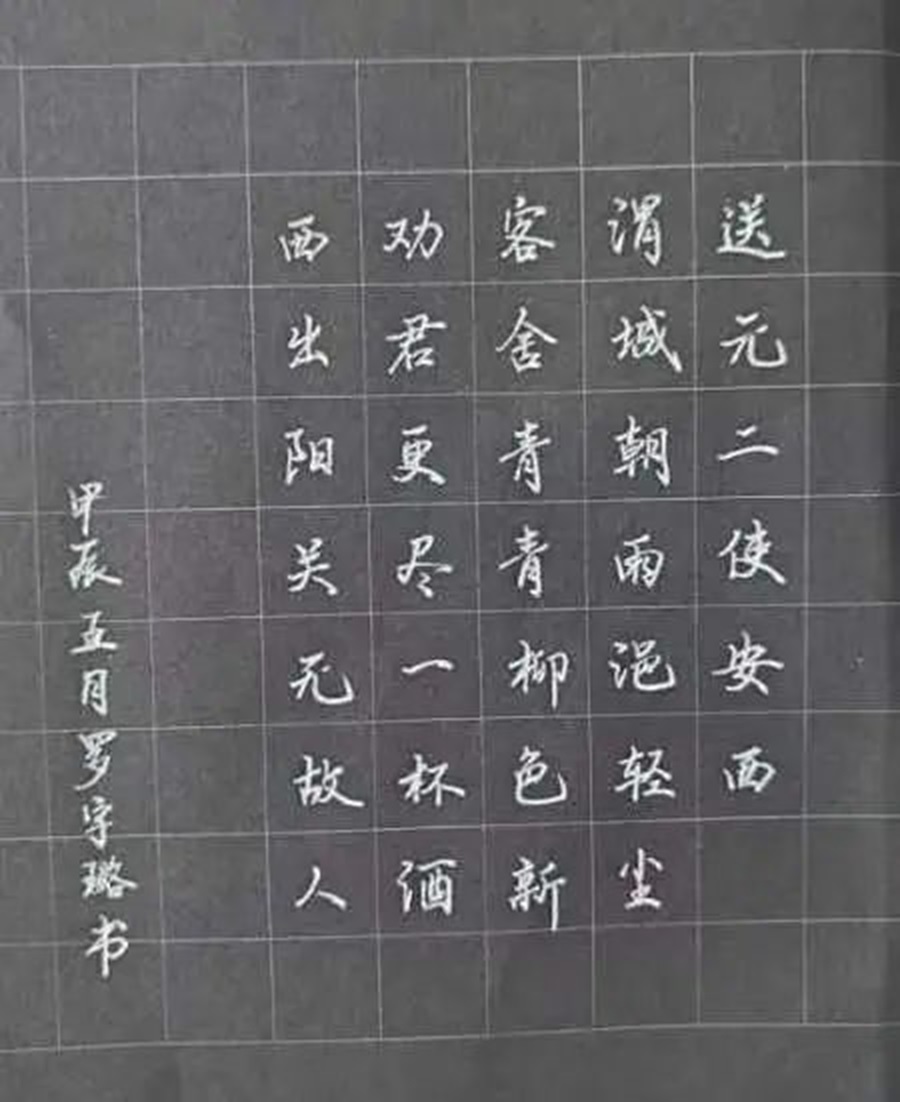 送元二使安西
渭城朝雨浥轻尘
客舍青青柳色新
劝君更尽一杯酒
西出阳关无故人
甲辰五月罗字璐书